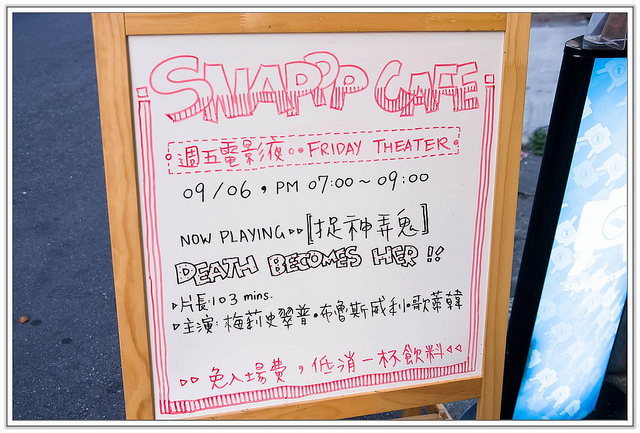 SNAPPP CAFE
週五電影夜 FRIDAY THEATER
09/06, PM 07:00~09:00
NOW PLAYING▹▹[捉神弄鬼]
DEATH BECOMES HER!!
▹片長:103 mins.
▹主演:梅莉史翠普•布魯斯威利•歌蒂韓
▹▹免入場費，低消一杯飲料◃◃